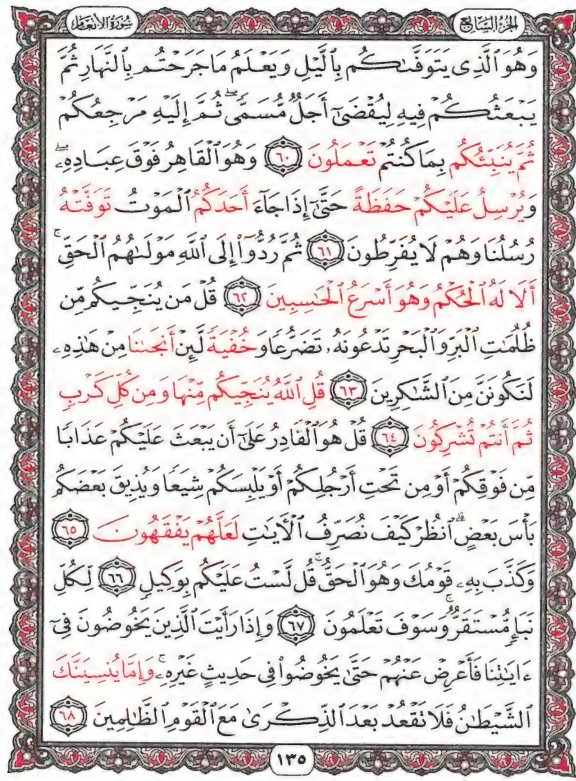 الجزء السابع
سورة الأنعام
وَهُوَ ٱلَّذِى يَتَوَفَّىٰكُم بِٱلَّيْلِ وَيَعْلَمُ مَا جَرَحْتُم بِٱلنَّهَارِ ثُمَّ
يَبْعَثُكُمْ فِيهِ لِيُقْضَىٰٓ أَجَلٌ مُّسَمًّى ۖ ثُمَّ إِلَيْهِ مَرْجِعُكُمْ
ثُمَّ يُنَبِّئُكُم بِمَا كُنتُمْ تَعْمَلُونَ ٦٠ وَهُوَ ٱلْقَاهِرُ فَوْقَ عِبَادِهِۦ ۖ
وَيُرْسِلُ عَلَيْكُمْ حَفَظَةً حَتَّىٰٓ إِذَا جَآءَ أَحَدَكُمُ ٱلْمَوْتُ تَوَفَّتْهُ
رُسُلُنَا وَهُمْ لَا يُفَرِّطُونَ ٦١ ثُمَّ رُدُّوٓا۟ إِلَى ٱللَّهِ مَوْلَىٰهُمُ ٱلْحَقِّ ۚ
أَلَا لَهُ ٱلْحُكْمُ وَهُوَ أَسْرَعُ ٱلْحَـٰسِبِينَ ٦٢ قُلْ مَن يُنَجِّيكُم مِّن
ظُلُمَـٰتِ ٱلْبَرِّ وَٱلْبَحْرِ تَدْعُونَهُۥ تَضَرُّعًا وَخُفْيَةً لَّئِنْ أَنجَىٰنَا مِنْ هَـٰذِهِۦ
لَنَكُونَنَّ مِنَ ٱلشَّـٰكِرِينَ ٦٣ قُلِ ٱللَّهُ يُنَجِّيكُم مِّنْهَا وَمِن كُلِّ كَرْبٍ
ثُمَّ أَنتُمْ تُشْرِكُونَ ٦٤ قُلْ هُوَ ٱلْقَادِرُ عَلَىٰٓ أَن يَبْعَثَ عَلَيْكُمْ عَذَابًا
مِّن فَوْقِكُمْ أَوْ مِن تَحْتِ أَرْجُلِكُمْ أَوْ يَلْبِسَكُمْ شِيَعًا وَيُذِيقَ بَعْضَكُم
بَأْسَ بَعْضٍ ۗ ٱنظُرْ كَيْفَ نُصَرِّفُ ٱلْـَٔايَـٰتِ لَعَلَّهُمْ يَفْقَهُونَ ٦٥
وَكَذَّبَ بِهِۦ قَوْمُكَ وَهُوَ ٱلْحَقُّ ۚ قُل لَّسْتُ عَلَيْكُم بِوَكِيلٍ ٦٦ لِّكُلِّ
نَبَإٍ مُّسْتَقَرٌّ ۚ وَسَوْفَ تَعْلَمُونَ ٦٧ وَإِذَا رَأَيْتَ ٱلَّذِينَ يَخُوضُونَ فِىٓ
ءَايَـٰتِنَا فَأَعْرِضْ عَنْهُمْ حَتَّىٰ يَخُوضُوا۟ فِى حَدِيثٍ غَيْرِهِۦ ۚ وَإِمَّا يُنسِيَنَّكَ
ٱلشَّيْطَـٰنُ فَلَا تَقْعُدْ بَعْدَ ٱلذِّكْرَىٰ مَعَ ٱلْقَوْمِ ٱلظَّـٰلِمِينَ ٦٨
١٣٥